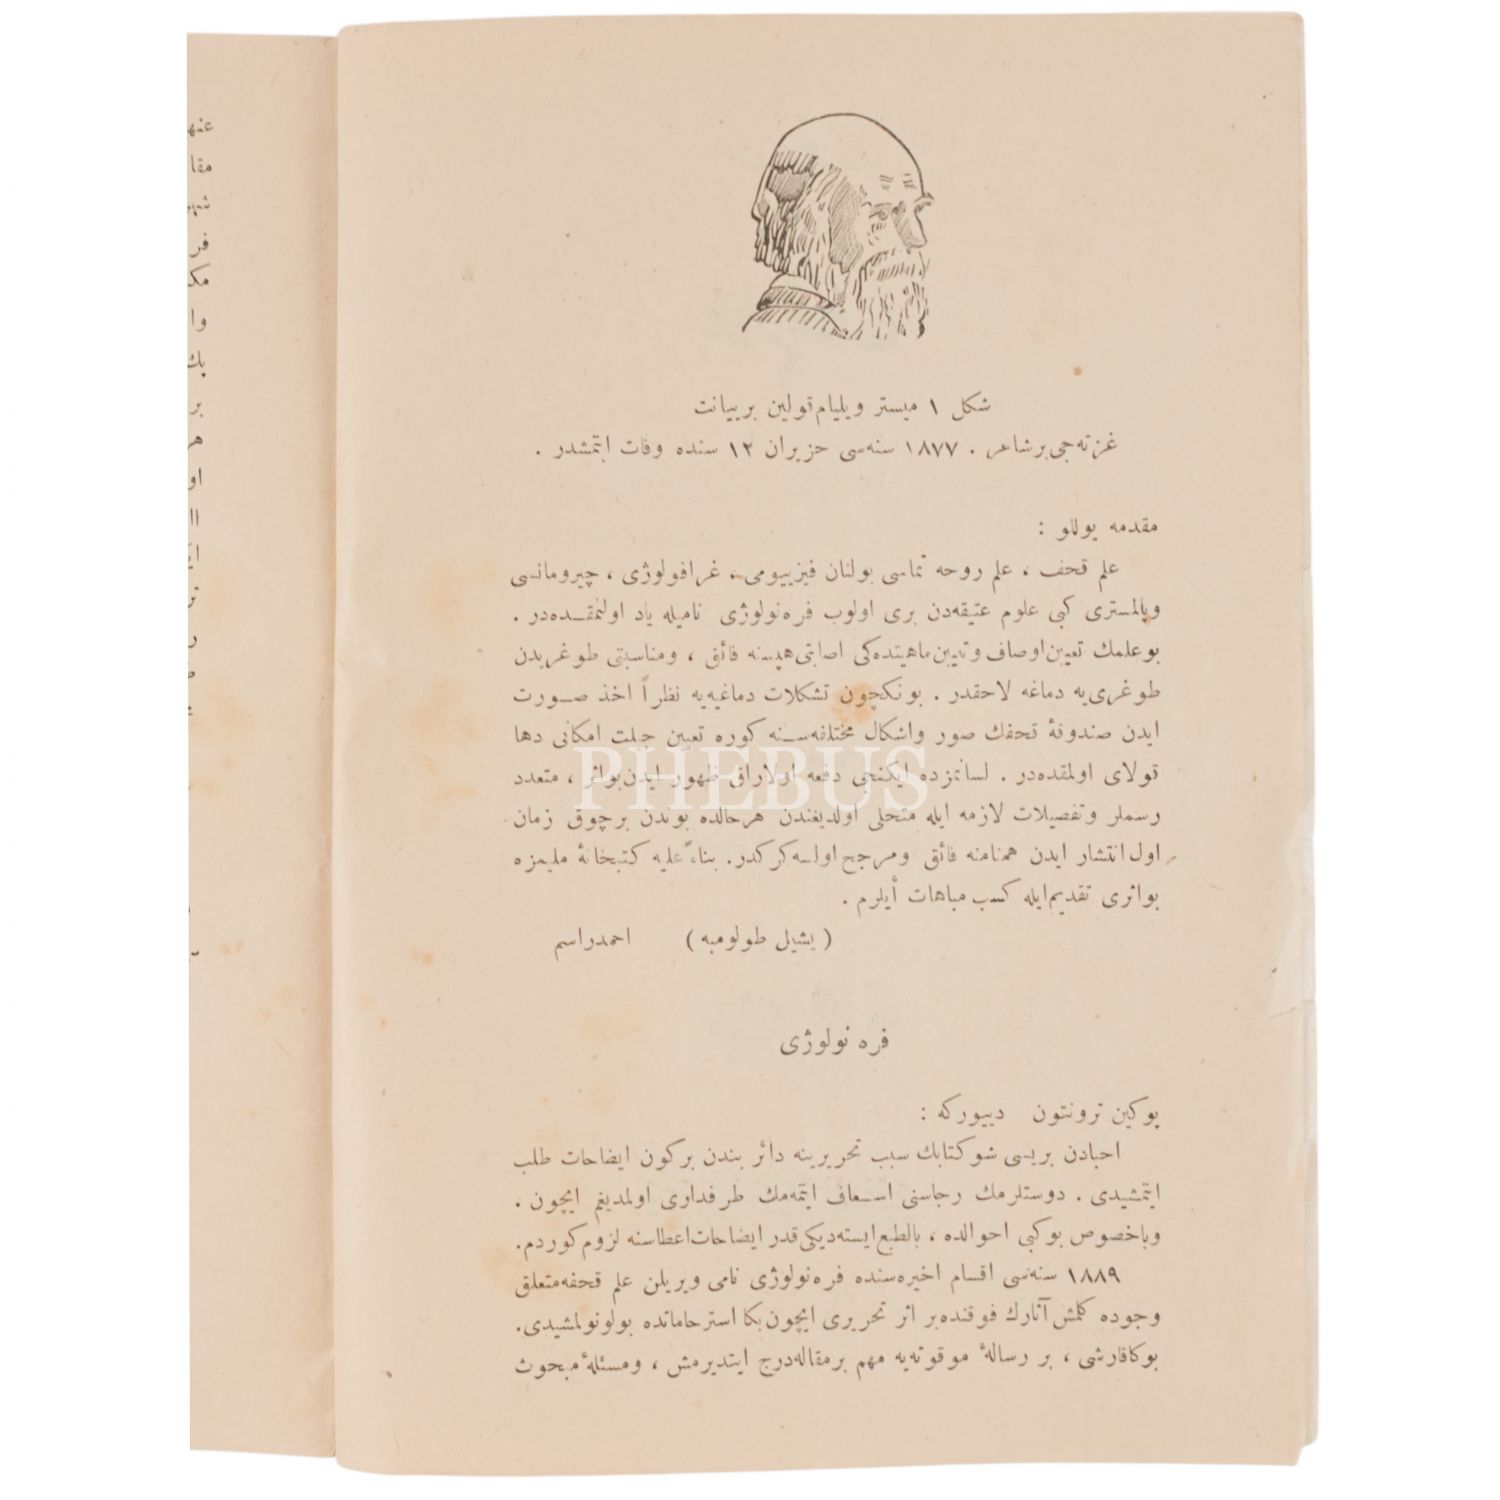 شكل ١ ميستر ويليام قولين برييانت
غزته جی بر شاعر . ١٨٧٧ سنه سی حزيران ١٢ سنده وفات ايتمشدر .
مقدمه يوللو :
علم قحف ، علم روحه تماسی بولنان فيزييومی ، غرافولوژی ، چيرومانسی
وپالمستری كبی علوم عتيقه دن بری اولوب فره نولوژی ناميله ياد اولنمقده در .
بو علمك تعيين اوصاف و تعيين ماهيتده كی اصابتی هپسنه فائق ، ومناسبتی طوغريدن
طوغری يه دماغه لاحقدر . بونكچون تشكلات دماغيه يه نظراً اخذ صورت
ايدن صندوقهٔ قحفك صور واشكال مختلفه سنه كوره تعيين جبلت امكانی دها
قولای اولمقده در . لسانمزده ايكنجی دفعه اولارق ظهور ايدن بو اثر ، متعدد
رسملر وتفصيلات لازمه ايله متحلی اولديغندن هر حالده بوندن برچوق زمان
اول انتشار ايدن همنامنه فائق ومرجح اولسه كركدر. بناءً عليه كتبخانهٔ مليمزه
بو اثری تقديم ايله كسب مباهات ايلرم .
( يشيل طولومبه ) احمد راسم
PHEBUS
فره نولوژی
يوكين ترونتون دييوركه :
احبادن بريسی شو كتابك سبب تحريرينه دائر بندن بر كون ايضاحات طلب
ايتمشيدی . دوستلرمك رجاسنی اسعاف ايتمه مك طرفداری اولمديغم ايچون .
وباخصوص بو كبی احوالده ، بالطبع ايسته ديكی قدر ايضاحات اعطاسنه لزوم كوردم.
١٨٨٩ سنه سی اقسام اخيره سنده فره نولوژی نامی ويريلن علم قحفه متعلق
وجوده كلمش آثارك فوقنده بر اثر تحريری ايچون بكا استرحاماتده بولونولمشيدی.
بوكا قارشی ، بر رسالهٔ موقوته يه مهم بر مقاله درج ايتديرمش ، ومسئلهٔ مبحوث
عنها
مقا
فر
مك
وا
بك
بر
هر
او